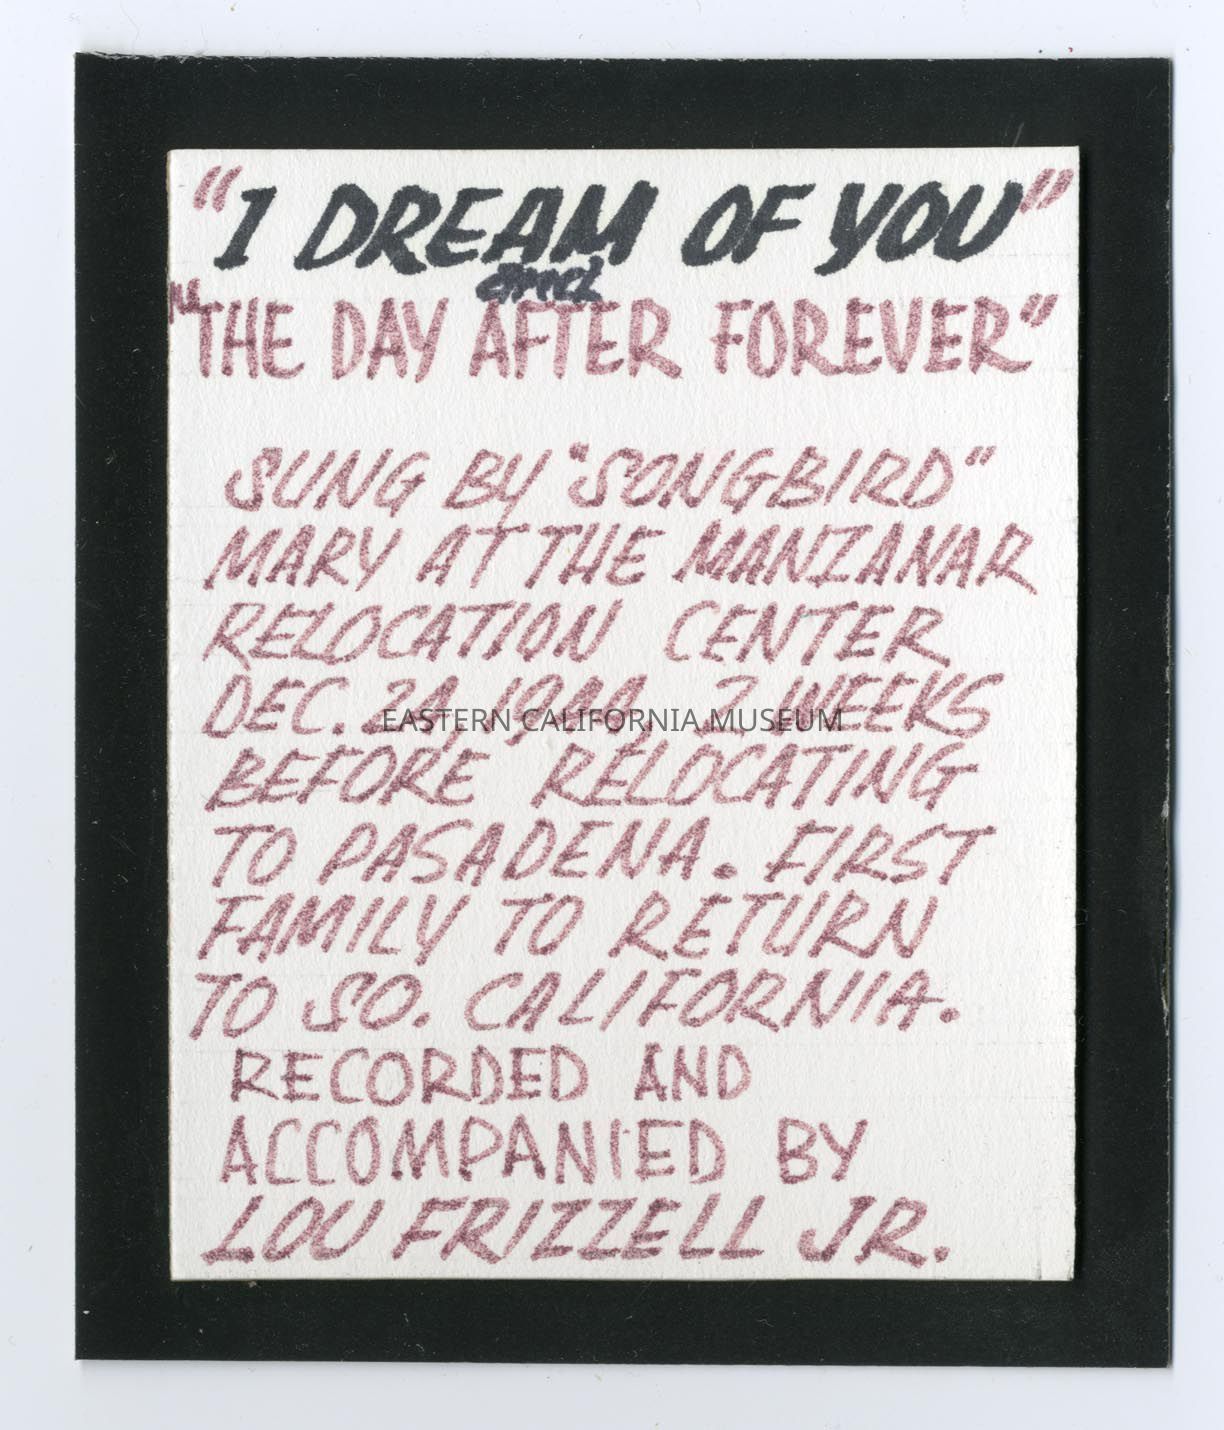 "I DREAM OF YOU"
and
"THE DAY AFTER FOREVER"
SUNG BY "SONGBIRD"
MARY AT THE MANZANAR
RELOCATION CENTER
DEC. 24, 1944, 2 WEEKS
EASTERN CALIFORNIA MUSEUM
BEFORE RELOCATING
TO PASADENA. FIRST
FAMILY TO RETURN
TO SO. CALIFORNIA.
RECORDED AND
ACCOMPANIED BY
LOU FRIZZELL JR.